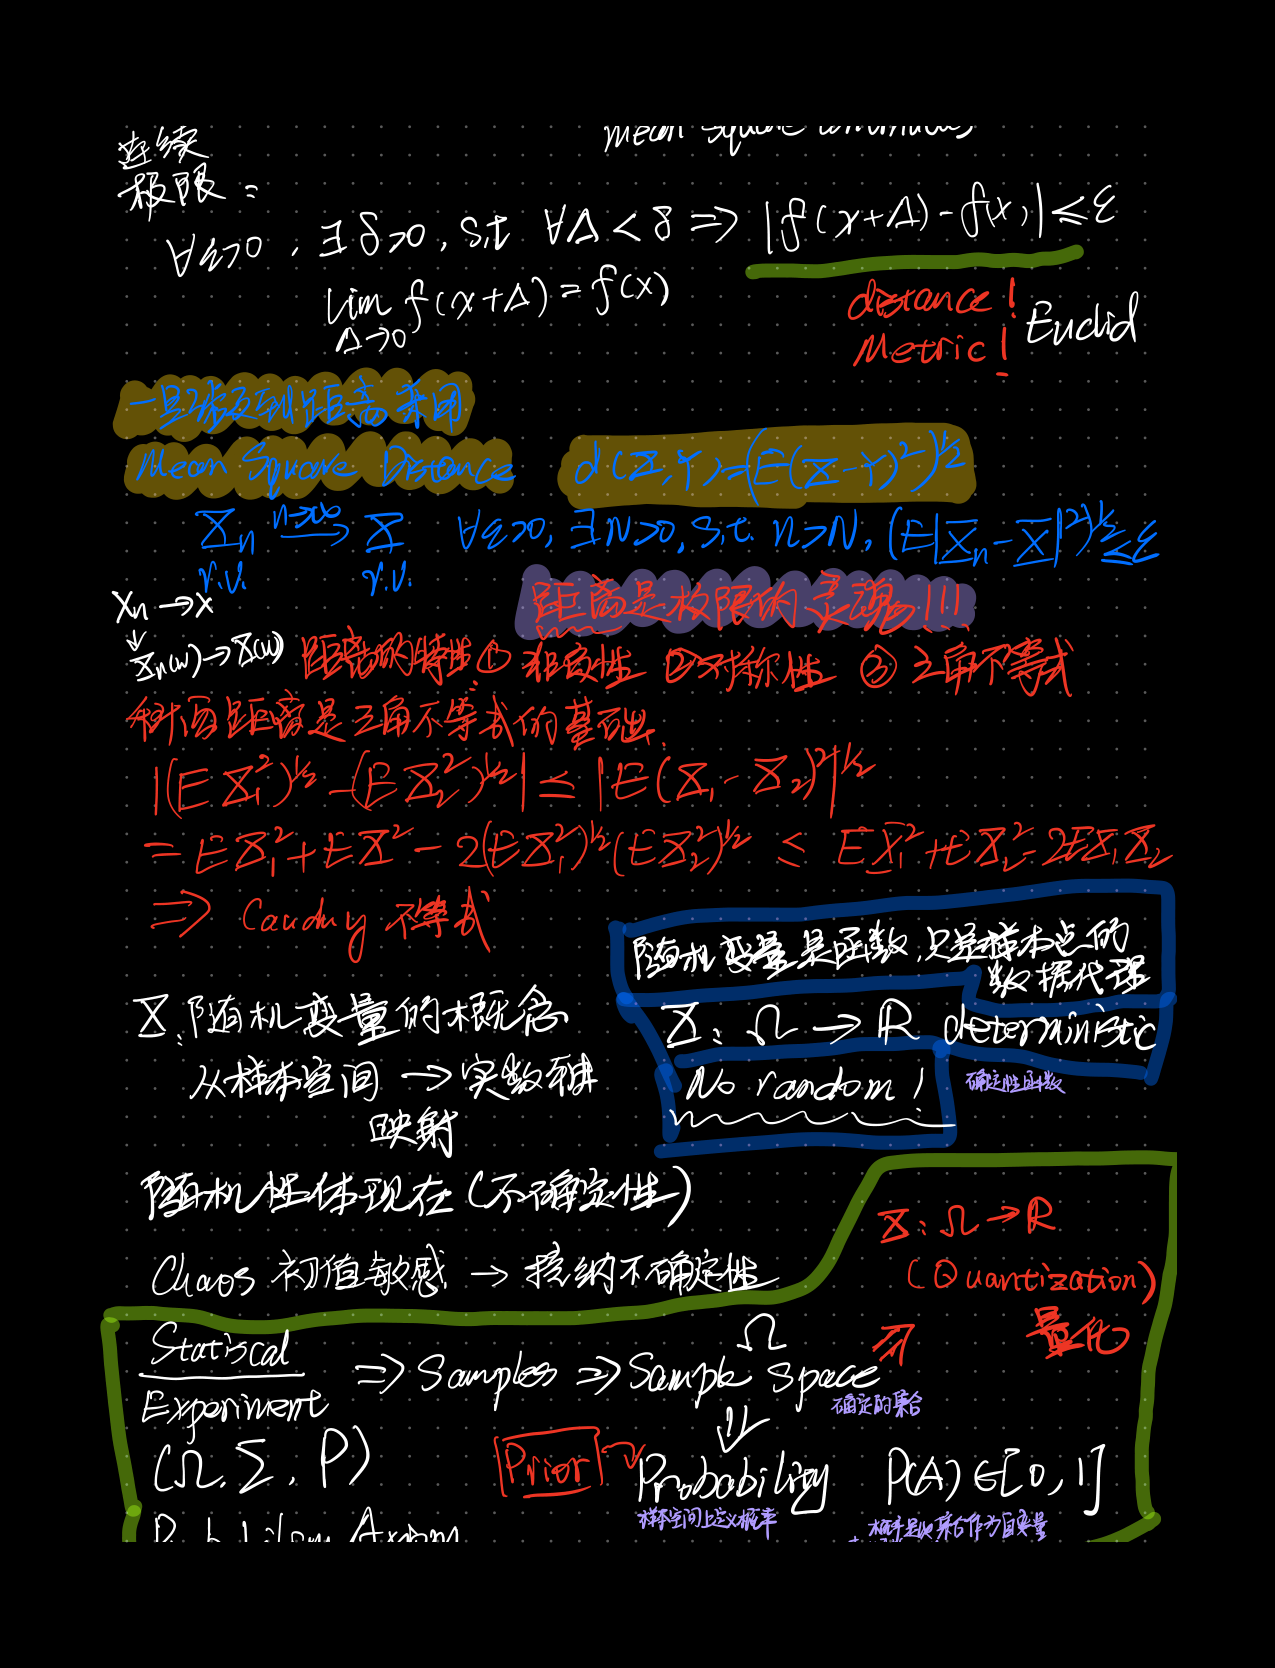 mean square continuous
连续
极限:
∀ε>0, ∃δ>0, s.t ∀Δ<δ ⇒ |f(x+Δ)-f(x)|≤ε
lim f(x+Δ)=f(x)
Δ→0
distance!
Metric!
Euclid
一旦涉及到距离 采用
Mean Square Distance d(X,Y)=(E(X-Y)²)^½
X_n n→∞ → X ∀ε>0, ∃N>0, s.t. n>N, (E|X_n-X|²)^½≤ε
r.v. r.v.
距离是极限的灵魂!!!
x_n→x
↓
X_n(w)→X(w)
距离的特性:① 非负性 ②对称性 ③ 三角不等式
距离是三角不等式的基础.
|(EX₁²)^½-(EX₂²)^½|≤|E(X₁-X₂)²|^½
= EX₁²+EX²-2(EX₁²)^½(EX₂²)^½ ≤ EX₁²+EX₂²-2EX₁X₂
⇒ Cauchy 不等式
随机变量是函数,只是样本点的
数据代理
X: Ω→ℝ deterministic
No random!
确定性函数
X:随机变量的概念
从样本空间→实数轴
映射
随机性体现在(不确定性)
Chaos 初值敏感→接纳不确定性
X:Ω→ℝ
(Quantization)
量化
Statiscal
Experiment
⇒Samples⇒Sample space
Ω
确定的集合
(Ω, Σ, P)
Prior→Probability P(A)∈[0,1]
样本空间上定义概率
概率是以集合作为自变量
Probability Axiom